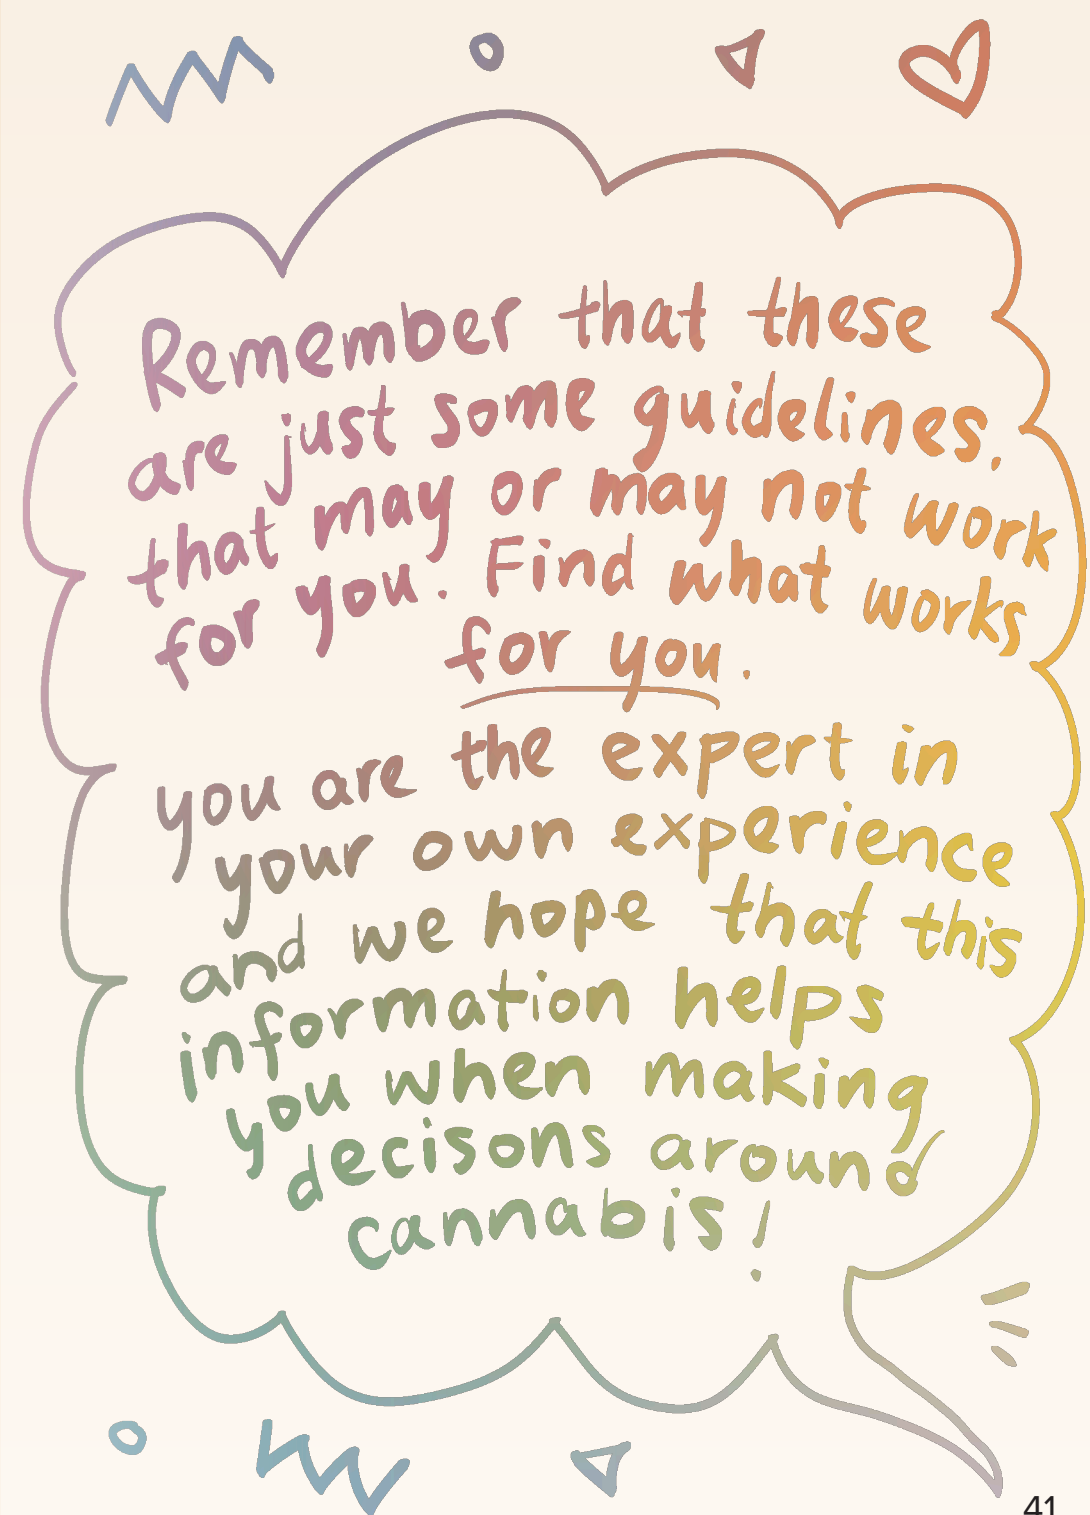 Remember that these
are just some guidelines,
that may or may not work
for you. Find what works
for you.
you are the expert in
your own experience
and we hope that this
information helps
you when making
decisons around
cannabis!
41